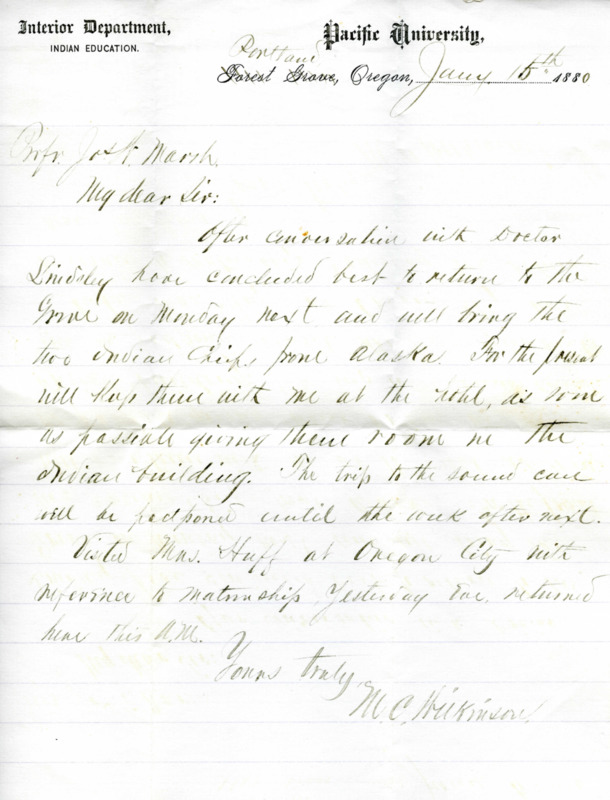 Interior Department,
INDIAN EDUCATION.
Pacific University,
Portland
Forest Grove, Oregon, Jany. 15th 1880
Profr. Jos W. Marsh.
My dear Sir:
After conversation with Doctor
Lindsley have concluded best to return to the
Grove on Monday next and will bring the
two Indian Chiefs from Alaska. For the present
will keep them with me at the hotel, as soon
as possible giving them room in the
Indian building. The trip to the sound
will be postponed until the week after next.
Visited Mrs. Huff at Oregon City with
reference to matronship Yesterday Eve. returned
here this A.M.
Yours truly,
M. C. Wilkinson.